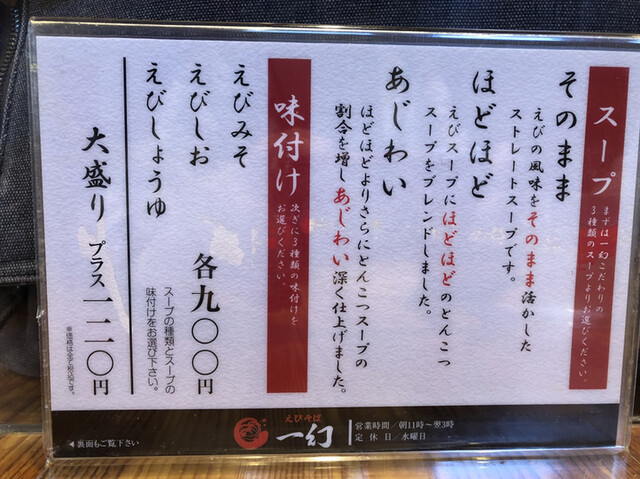 スープ
まずは一幻こだわりの
3種類のスープよりお選びください。
そのまま
えびの風味をそのまま活かした
ストレートスープです。
ほどほど
えびスープにほどほどのとんこつ
スープをブレンドしました。
あじわい
ほどほどよりさらにとんこつスープの
割合を増しあじわい深く仕上げました。
味付け
次ぎに3種類の味付けを
お選びください。
えびみそ
えびしお
えびしょうゆ
各九〇〇円
スープの種類とスープの
味付けをお選び下さい。
大盛り プラス一二〇円
※価格は全て税込です。
◀裏面もご覧下さい
えびそば
一幻
営業時間/朝11時~翌3時
定休日/水曜日